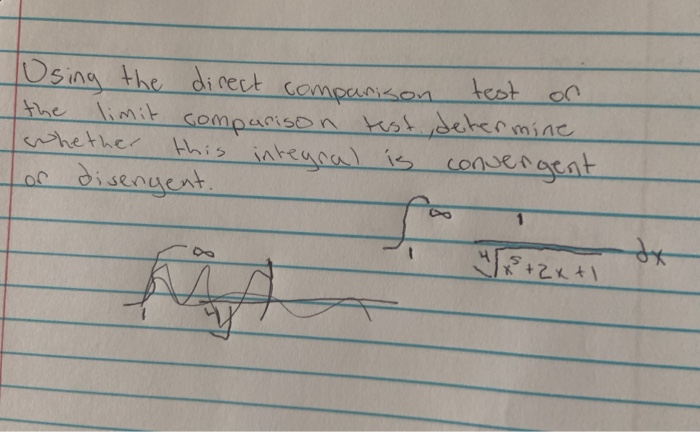 Using the direct comparison test or
the limit comparison test, determine
whether this integral is convergent
or disengent.
∫₁^∞ 1/⁴√(x⁵+2x+1) dx